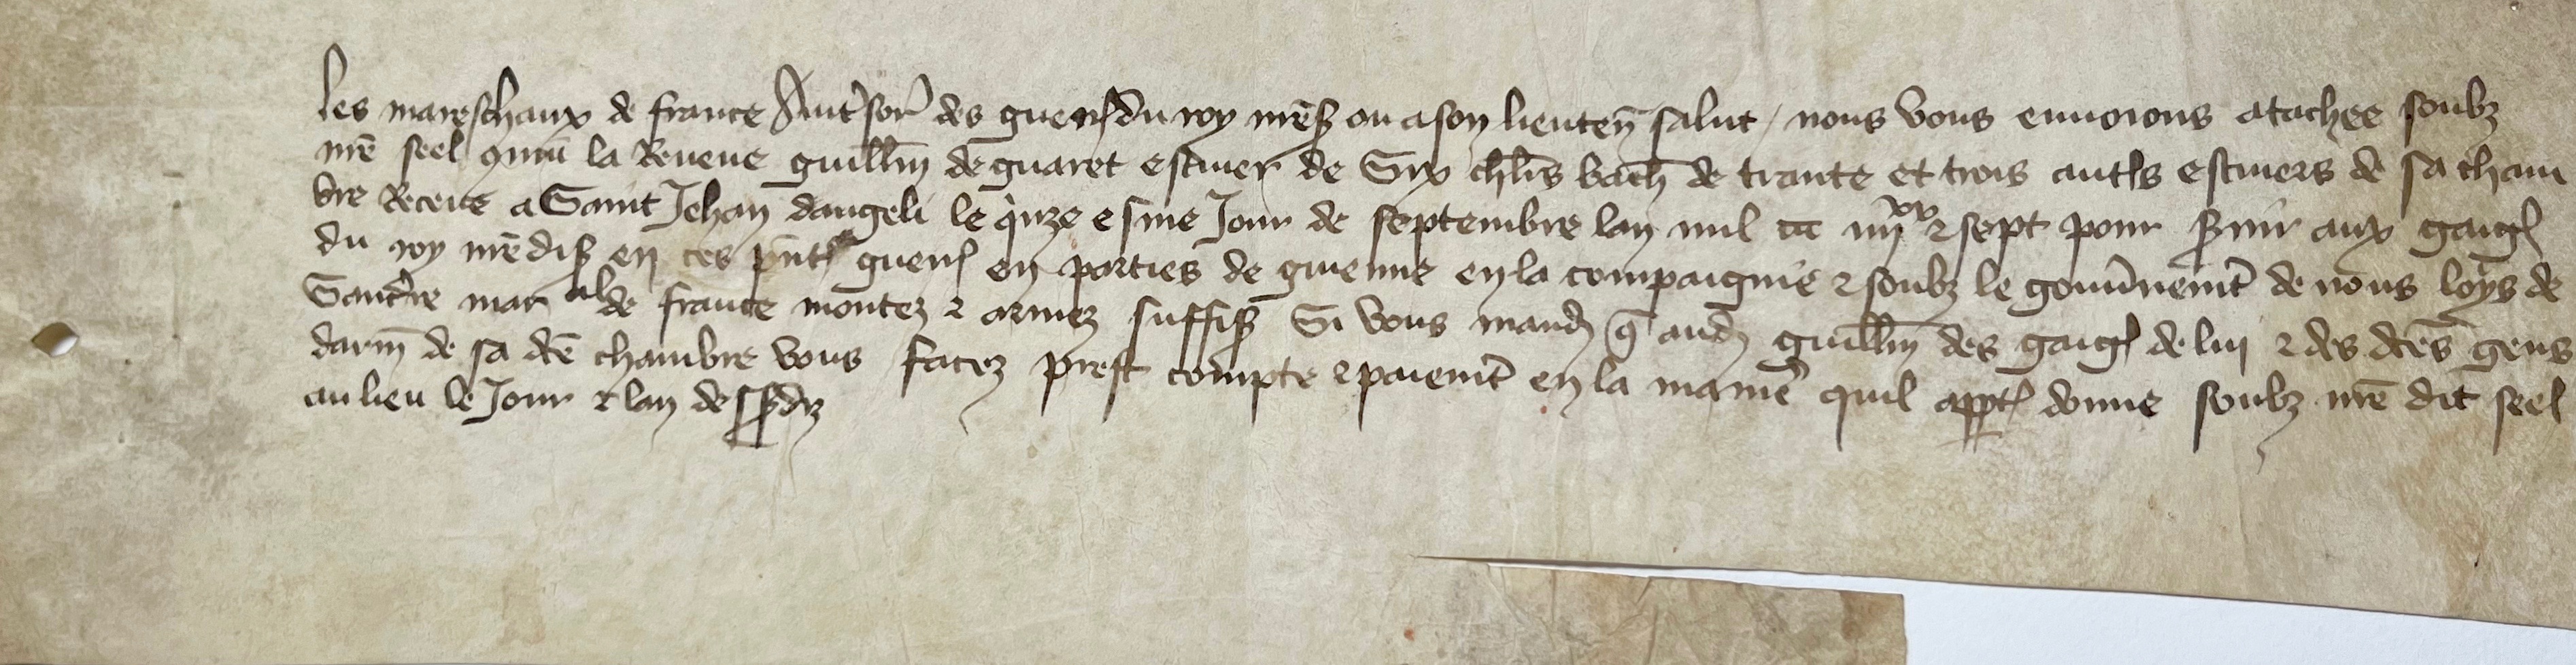 Les mareschaux de france Au tsor des guerr du roy nres ou a son lieuten salut / nous vous envoions atachee soubz
nre seel commun la Reveue guillm de guaret escuier de Six chlrs bach de trante et trois autrs escuiers de sa cham
bre Receue a Saint Jehan dangeli le quinze esme Jour de septembre lan mil ccc iiijxx et sept pour servir aux gaig
du roy nredis en ces pnts guerr en parties de guienne en la compaignie et soubz le gouvnemt de nous loys de
Sancrre maral de france montez et armez suffis Si vous mand q aud guillm des gaig de lui et des dces gens
darm de sa dce chambre vous facez prest compte et paiemt en la manie quil appt donne soubz nre dit seel
au lieu le Jour et lan dessusdiz